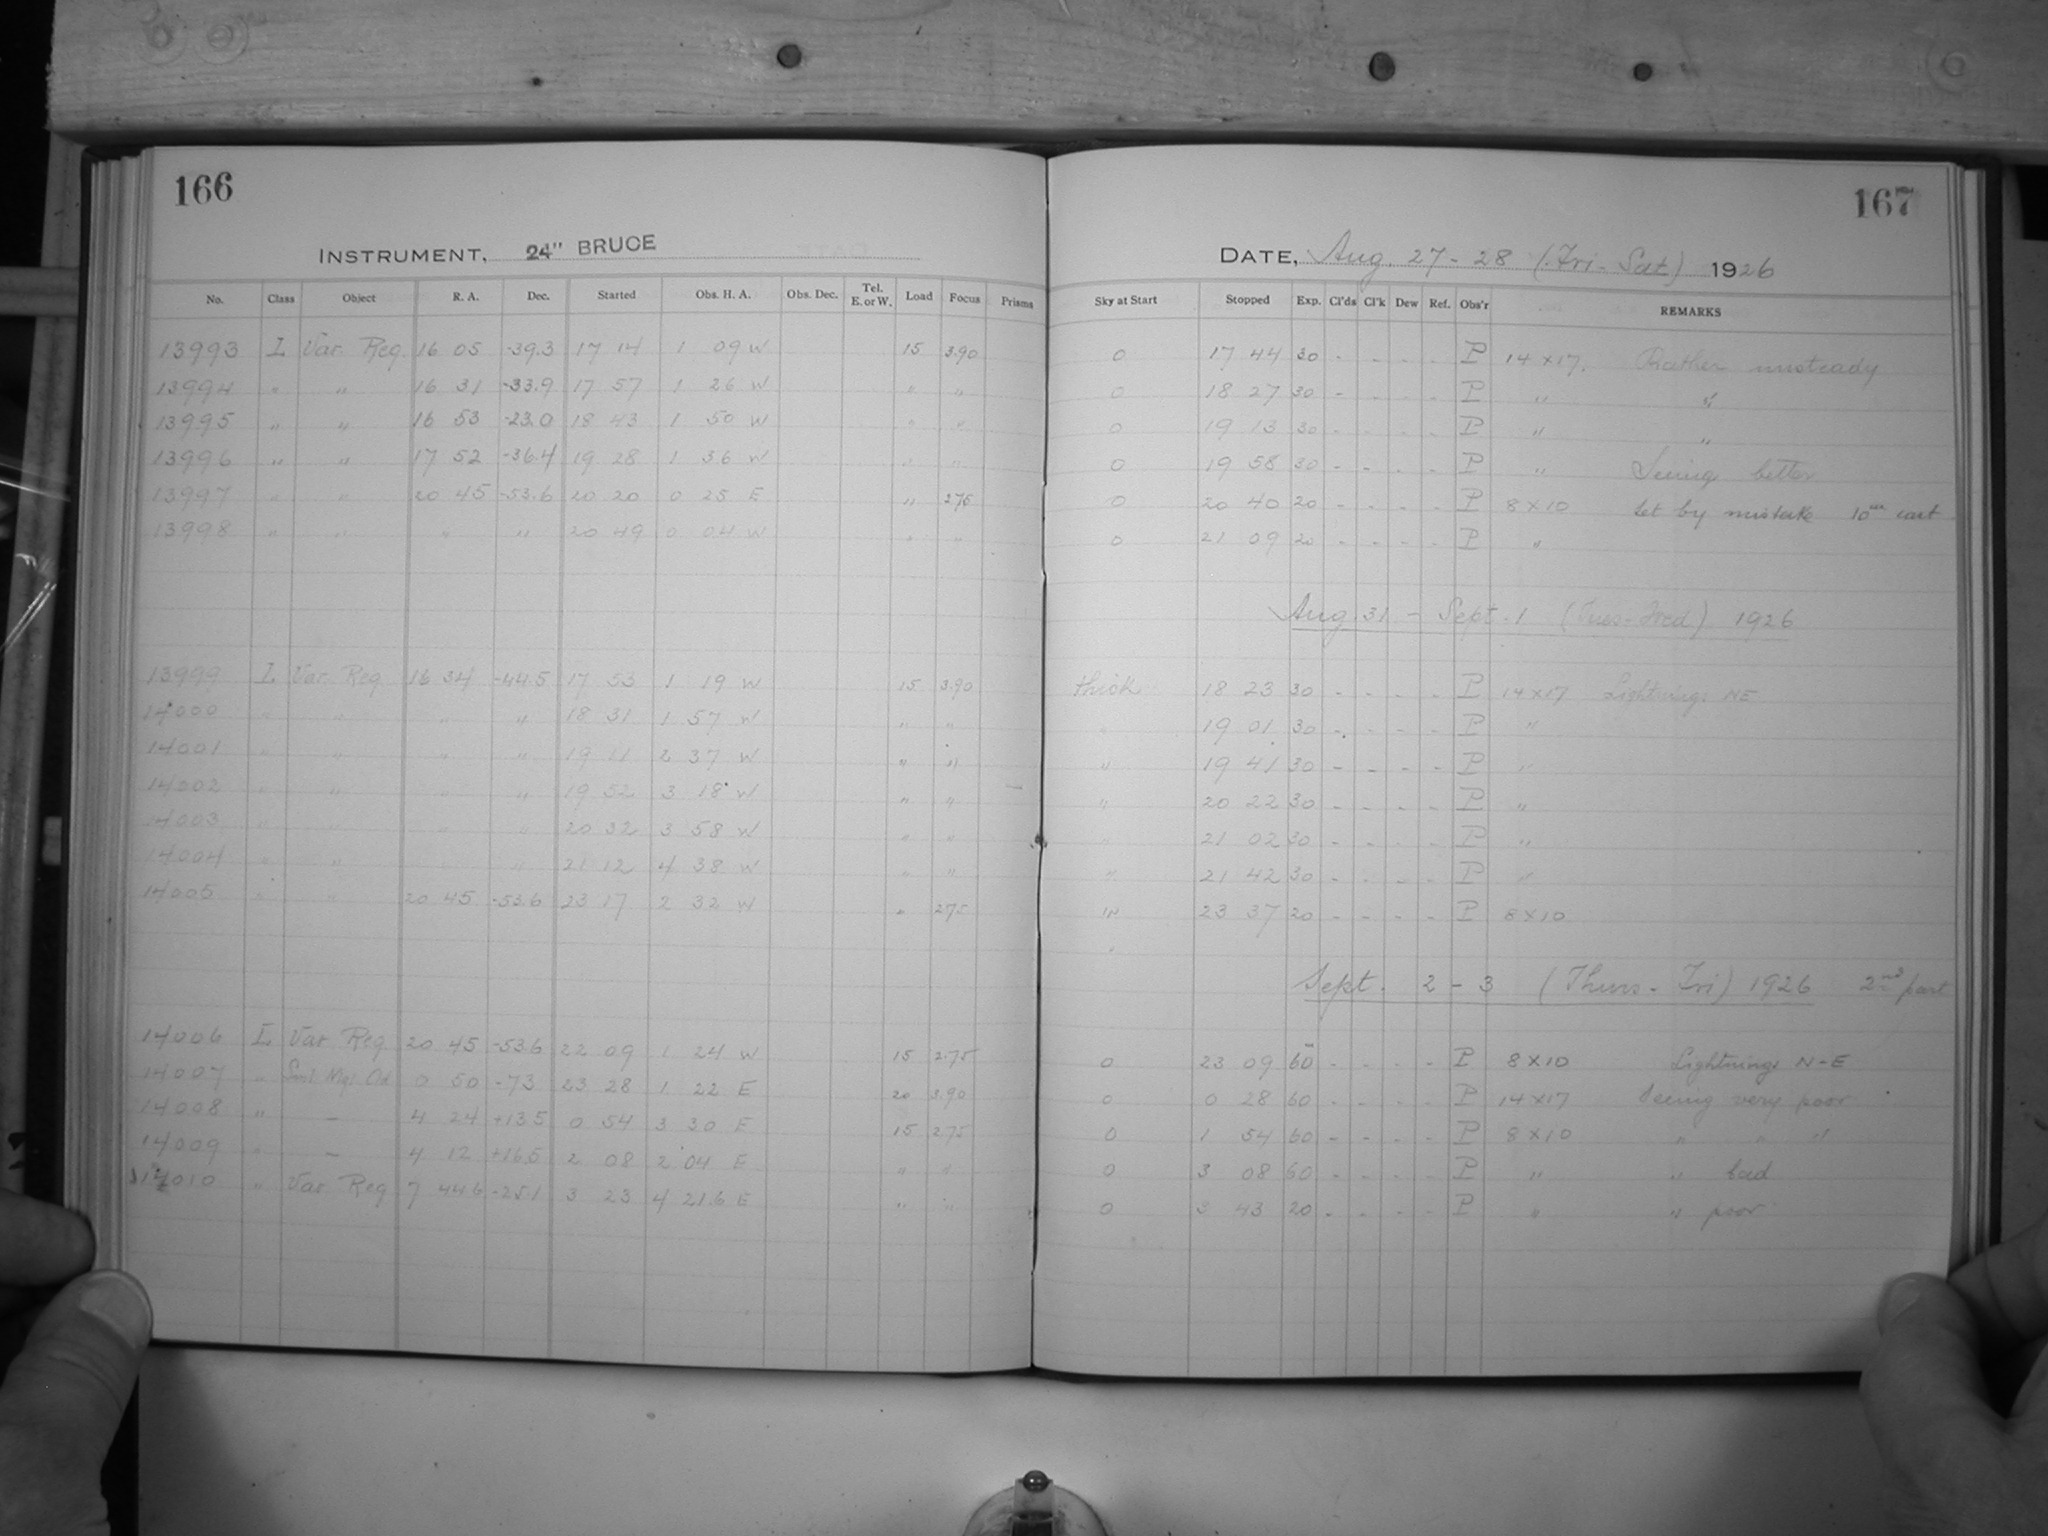 166
INSTRUMENT, 24" BRUCE
No. Class Object R. A. Dec. Started Obs. H. A. Obs. Dec. Tel. E. or W. Load Focus Prisms
13993 I Var. Reg. 16 05 -39.3 17 14 1 09 W 15 3.90
13994 " " 16 31 -33.9 17 57 1 26 W " "
13995 " " 16 53 -23.0 18 43 1 50 W " "
13996 " " 17 52 -36.4 19 28 1 36 W " "
13997 " " 20 45 -53.6 20 20 0 25 E " 2.75
13998 " " " " 20 49 0 04 W " "
13999 I Var. Reg 16 34 -44.5 17 53 1 19 W 15 3.90
14000 " " " " 18 31 1 57 W " "
14001 " " " " 19 11 2 37 W " "
14002 " " " " 19 52 3 18 W " "
14003 " " " " 20 32 3 58 W " "
14004 " " " " 21 12 4 38 W " "
14005 " " 20 45 -53.6 23 17 2 32 W " 2.75
14006 I Var Reg 20 45 -53.6 22 09 1 24 W 15 2.75
14007 " Sml. Mgl. Cld 0 50 -73 23 28 1 22 E 20 3.90
14008 " — 4 24 +13.5 0 54 3 30 E 15 2.75
14009 " — 4 12 +16.5 2 08 2 04 E " "
14010 " Var. Reg 7 44.6 -25.1 3 23 4 21.6 E " "
167
DATE, Aug. 27 - 28 (Fri - Sat) 1926
Sky at Start Stopped Exp. Cl'ds Cl'k Dew Ref. Obs'r REMARKS
0 17 44 30 - - - - P 14 x 17. Rather unsteady
0 18 27 30 - - - - P " "
0 19 13 30 - - - - P " "
0 19 58 30 - - - - P " Seeing better
0 20 40 20 - - - - P 8 x 10 Set by mistake 10m east
0 21 09 20 - - - - P "
Aug. 31 - Sept. 1 (Tues - Wed) 1926
thick 18 23 30 - - - - P 14 x 17 Lightning NE
" 19 01 30 - - - - P "
" 19 41 30 - - - - P "
" 20 22 30 - - - - P "
" 21 02 30 - - - - P "
" 21 42 30 - - - - P "
23 37 20 - - - - P 8 x 10
Sept. 2 - 3 (Thurs - Fri) 1926 2nd part
0 23 09 60m - - - - P 8 x 10 Lightning N-E
0 0 28 60 - - - - P 14 x 17 Seeing very poor
0 1 54 60 - - - - P 8 x 10 " " "
0 3 08 60 - - - - P " " bad
0 3 43 20 - - - - P " " poor